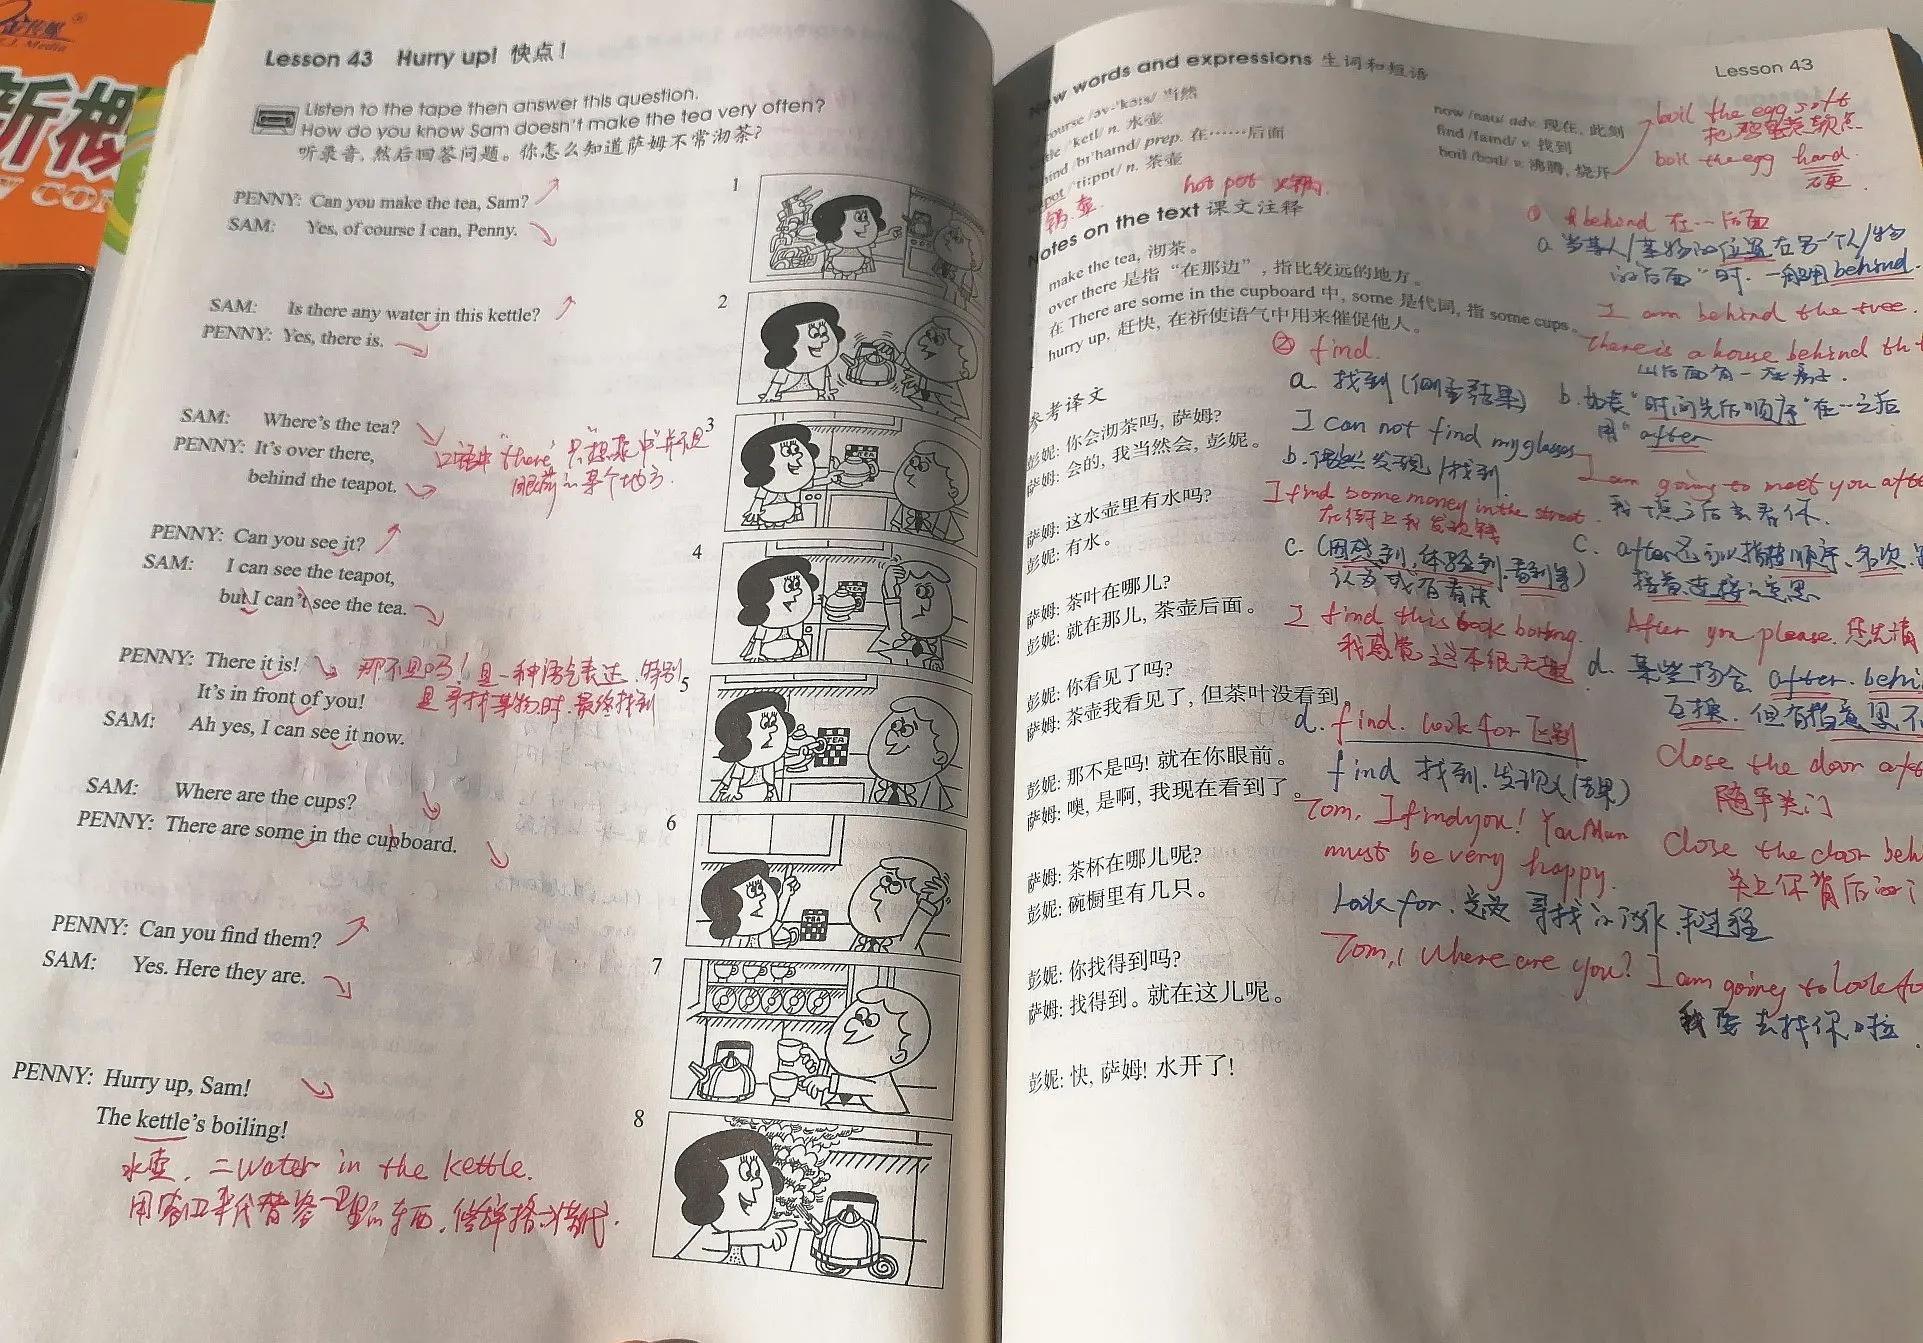 新概
Lesson 43 Hurry up! 快点!
Listen to the tape then answer this question.
How do you know Sam doesn't make the tea very often?
听录音,然后回答问题。你怎么知道萨姆不常沏茶?
PENNY: Can you make the tea, Sam?
SAM: Yes, of course I can, Penny.
SAM: Is there any water in this kettle?
PENNY: Yes, there is.
SAM: Where's the tea?
PENNY: It's over there,
behind the teapot.
口语中"there"只"想象中"并不是
眼前的某个地方.
PENNY: Can you see it?
SAM: I can see the teapot,
but I can't see the tea.
PENNY: There it is!
那不是吗! 是一种语气表达. 特别
It's in front of you!
是寻找某物时.最终找到
SAM: Ah yes, I can see it now.
SAM: Where are the cups?
PENNY: There are some in the cupboard.
PENNY: Can you find them?
SAM: Yes. Here they are.
PENNY: Hurry up, Sam!
The kettle's boiling!
水壶. = water in the kettle.
用容器来代替容器里的东西.
1
2
3
4
5
6
7
8
TEA
TEA
New words and expressions 生词和短语
Lesson 43
course /əv-'kɔ:s/ 当然
/'ketl/ n. 水壶
/bɪ'haɪnd/ prep. 在……后面
/'ti:pɒt/ n. 茶壶
now /naʊ/ adv. 现在, 此刻
find /faɪnd/ v. 找到
boil /bɔɪl/ v. 沸腾, 烧开
boil the egg soft
把鸡蛋煮软点
boil the egg hard.
硬.
hot pot 火锅.
锅.壶.
Notes on the text 课文注释
make the tea, 沏茶。
over there 是指“在那边”, 指比较远的地方。
在 There are some in the cupboard 中, some 是代词, 指 some cups。
hurry up, 赶快, 在祈使语气中用来催促他人。
① behind 在…后面
a 当某人/某物的位置在另一个人/物
的后面"时. 一般用behind.
I am behind the tree.
There is a house behind th
山后面有一座房子.
b. 如表"时间先后顺序"在…之后
用"after
I am going to meet you afte
我一点之后去看你.
c. after还可以指顺序.名次.
接着连接的意思
After you please. 您先请
d. 某些场合 after. behi
互换. 但有指意思不
Close the door aft
随手关门
Close the door beh
关上你背后的门
② find.
a. 找到 (侧重结果)
I can not find my glasses
b. 偶然发现/找到.
I find some money in the street.
在街上我发现钱
c. (因感到, 体验到, 看到等)
认为或有看法
I find this book boring.
我感觉这本很无趣
d. find. look for 区别
find 找到.发现 (结果)
Tom, I find you! You Mum
must be very happy.
look for. 寻找的动作和过程
Tom, Where are you? I am going to look fo
我要去找你啦.
参考译文
彭妮: 你会沏茶吗, 萨姆?
萨姆: 会的, 我当然会, 彭妮。
萨姆: 这水壶里有水吗?
彭妮: 有水。
萨姆: 茶叶在哪儿?
彭妮: 就在那儿, 茶壶后面。
彭妮: 你看见了吗?
萨姆: 茶壶我看见了, 但茶叶没看到
彭妮: 那不是吗! 就在你眼前。
萨姆: 噢, 是啊, 我现在看到了。
萨姆: 茶杯在哪儿呢?
彭妮: 碗橱里有几只。
彭妮: 你找得到吗?
萨姆: 找得到。就在这儿呢。
彭妮: 快, 萨姆! 水开了!